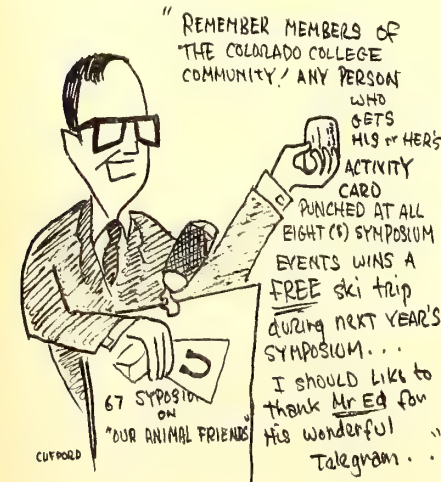 "REMEMBER MEMBERS OF
THE COLORADO COLLEGE
COMMUNITY! ANY PERSON
WHO
GETS
HIS or HER'S
ACTIVITY
CARD
PUNCHED AT ALL
EIGHT (8) SYMPOSIUM
EVENTS WINS A
FREE ski trip
during next YEAR'S
SYMPOSIUM...
I SHOULD LIKE to
thank Mr Ed for
His wonderful
Telegram..."
U
67 SYPOSIUM
ON
"OUR ANIMAL FRIENDS"
CLIFFORD